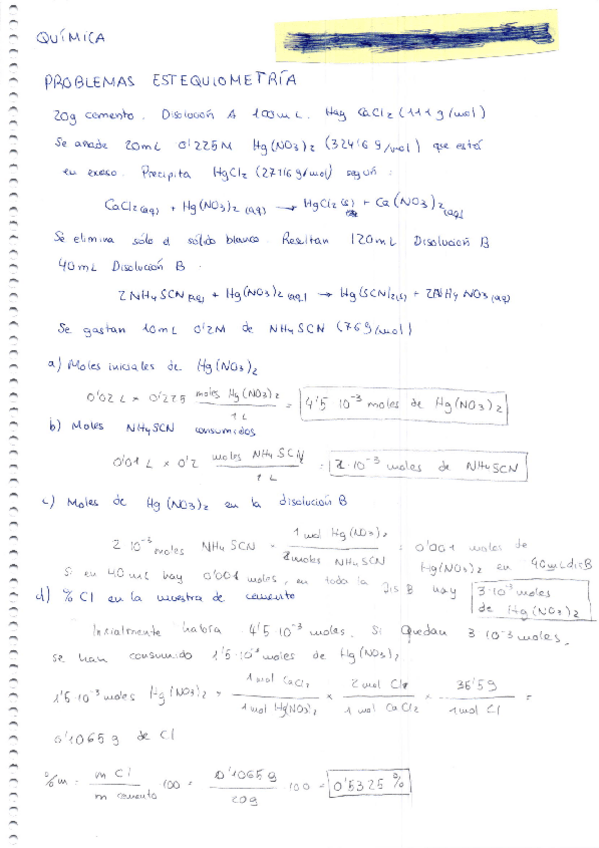 QUÍMICA
PROBLEMAS ESTEQUIOMETRÍA
20g cemento. Disolución A 100mL. Hay CaCl2 (111 g/mol)
Se añade 20mL 0'225M Hg(NO3)2 (324'6 g/mol) que está
en exceso. Precipita HgCl2 (271'6 g/mol) según:
CaCl2(aq) + Hg(NO3)2 (aq) → HgCl2(s) + Ca(NO3)2(aq)
Se elimina sólo el sólido blanco. Resultan 120mL Disolución B
40mL Disolución B.
2NH4SCN(aq) + Hg(NO3)2(aq) → Hg(SCN)2(s) + 2NH4NO3(aq)
Se gastan 10mL 0'2M de NH4SCN (76g/mol)
a) Moles iniciales de Hg(NO3)2
0'02 L × 0'225 moles Hg(NO3)2 / 1 L = 4'5 10⁻³ moles de Hg(NO3)2
b) Moles NH4SCN consumidos
0'01 L × 0'2 moles NH4SCN / 1 L = 2·10⁻³ moles de NH4SCN
c) Moles de Hg(NO3)2 en la disolución B
2 10⁻³ moles NH4SCN · 1 mol Hg(NO3)2 / 2 moles NH4SCN = 0'001 moles de
Hg(NO3)2 en 40mL disB
Si en 40mL hay 0'001 moles, en toda la Dis B hay 3·10⁻³ moles de Hg(NO3)2
d) % Cl en la muestra de cemento
Inicialmente habría 4'5·10⁻³ moles. Si quedan 3 10⁻³ moles,
se han consumido 1'5·10⁻³ moles de Hg(NO3)2
1'5·10⁻³ moles Hg(NO3)2 × 1 mol CaCl2 / 1 mol Hg(NO3)2 × 2 mol Cl / 1 mol CaCl2 × 35'5g / 1 mol Cl =
0'1065 g de Cl
%m = m Cl / m cemento · 100 = 0'1065g / 20g · 100 = 0'5325 %